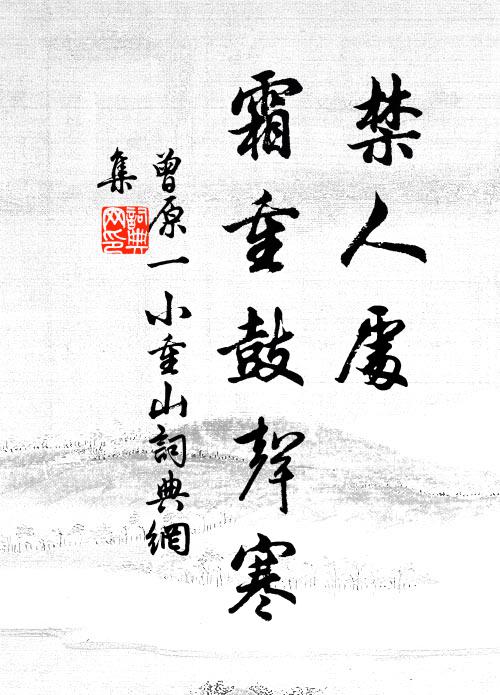 禁人處
霜重鼓聲寒
曾原一小重山詞典網
集
詞典網印